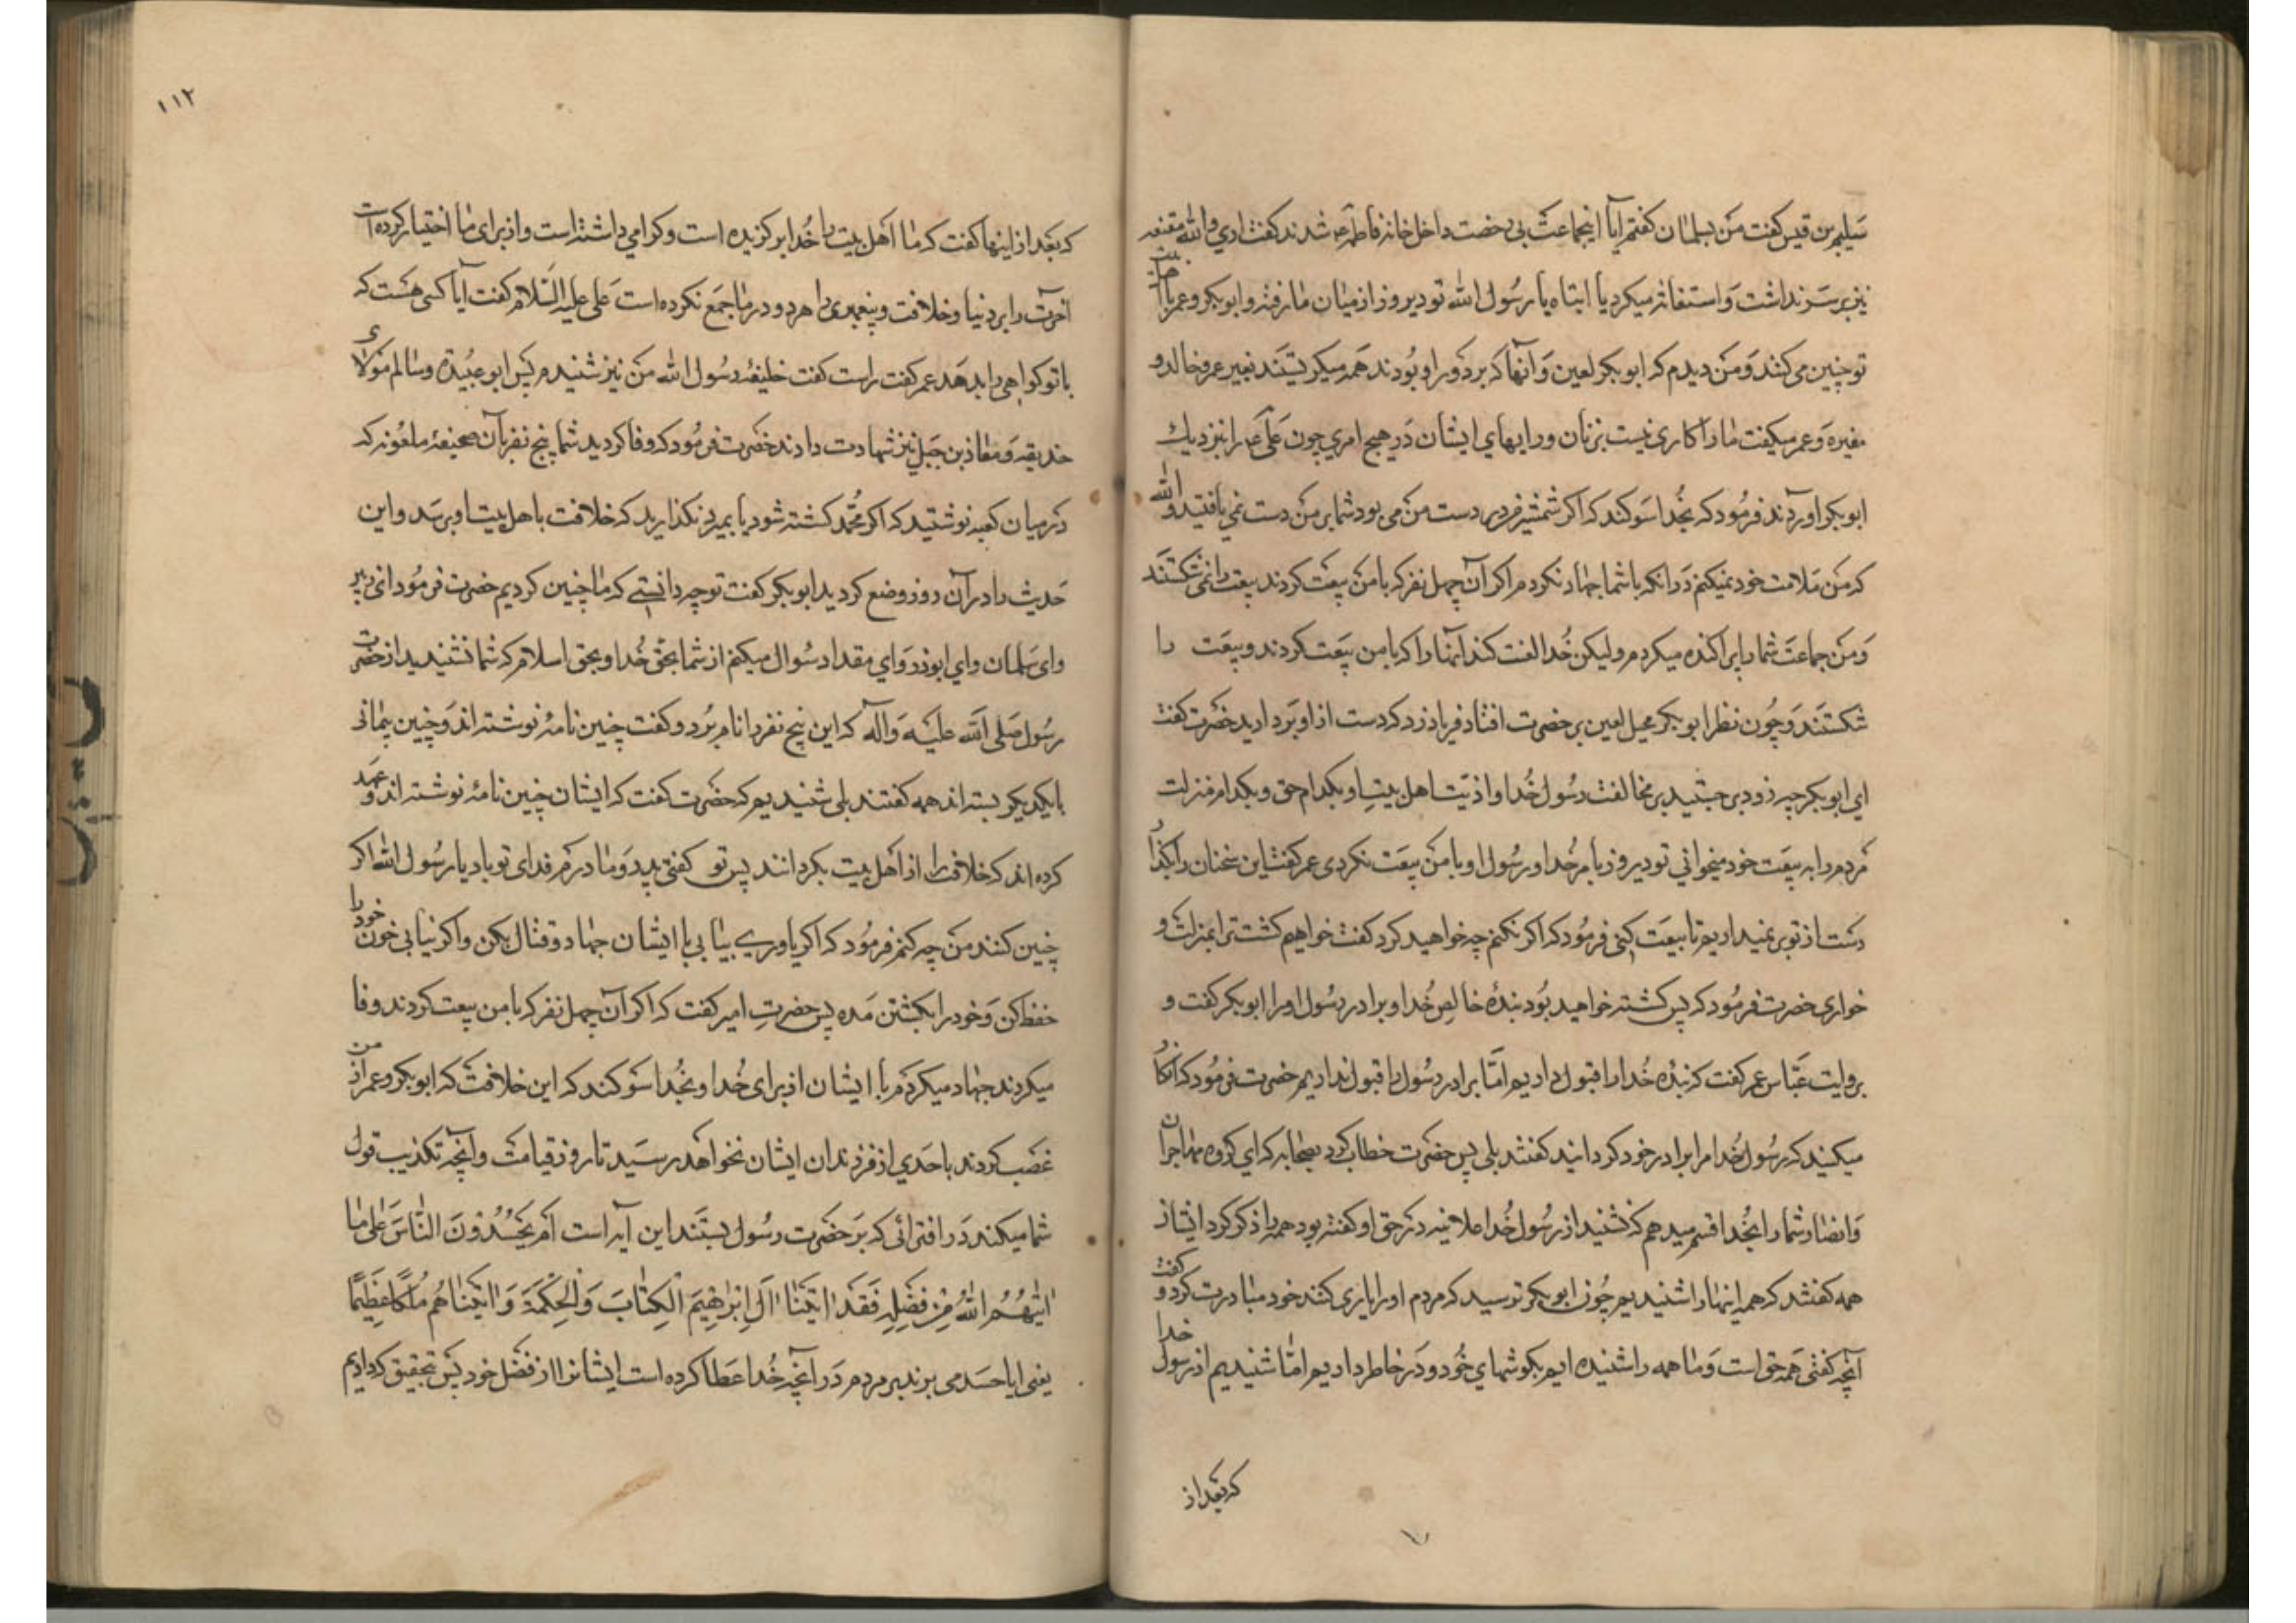 سلیم بن قیس کفت من بسلمان کفتم ایا اینجماعت بی رخصت داخل خانهٔ فاطمه شدند کفت اری والله مقنعه
نیز بر سر نداشت و استغاثه میکرد یا ابتاه یا رسول الله تو دیروز از میان ما رفتهٔ و ابوبکر و عمر با اهل بیت
تو چنین می کنند و من دیدم که ابوبکر لعین و آنها که بر دور او بودند همه میکریستند بغیر عمر و خالد و
مغیره و عمر میکفت ما را کاری نیست بزنان و رایهای ایشان در هیچ امری چون علی را بنزدیک
ابوبکر اوردند فرمود که بخدا سوکند که اکر شمشیرم در دست من می بود شما بر من دست نمی یافتید والله
که من ملامت خود نمیکنم در انکه با شما جهاد نکردم اکر آن چهل نفر که با من بیعت کردند بیعت را نمی شکستند
و من جماعت شما را پراکنده میکردم ولیکن خدا لعنت کند انها را که با من بیعت کردند و بیعت را
شکستند و چون نظر ابوبکر محیل لعین بر حضرت افتاد فریاد زد که دست از او بردارید حضرت کفت
ای ابوبکر چه زود بر جستید بر مخالفت رسول خدا و اذیت اهل بیت او بکدام حق و بکدام منزلت
مردم را به بیعت خود میخوانی تو دیروز بامر خدا و رسول او با من بیعت نکردی عمر کفت این سخنان را بکذار
دست از تو بر نمیداریم تا بیعت کنی فرمود که اکر نکنم چه خواهید کرد کفت خواهیم کشت ترا بمذلت و
خواری حضرت فرمود که پس کشته خواهید بود بندهٔ خالص خدا و برادر رسول او را ابوبکر کفت و
بروایت عباس عمر کفت که بندهٔ خدا را قبول داریم اما برادر رسول را قبول نداریم حضرت فرمود که انکار
میکنید که رسول خدا مرا برادر خود کردانید کفتند بلی پس حضرت خطاب کرد بصحابه که ای کروه مهاجران
و انصار شما را بخدا قسم میدهم که شنید از رسول خدا علانیه در حق او کفته بود همه را ذکر کرد ایشان
همه کفتند که همه اینها را شنیدیم چون ابوبکر ترسید که مردم او را یاری کنند خود مبادرت کرد و کفت
آنچه کفتی همه حق است و ما همه را شنیده ایم بکوشهای خود و در خاطر داریم اما شنیدیم از رسول خدا
که بعد از
که بعد از اینها کفت که ما اهل بیت را خدا برکزیده است و کرامی داشته است و از برای ما اختیار کرده است
اخرت را بر دنیا و خلافت و پیغمبری را هر دو در ما جمع نکرده است علی علیه السلام کفت آیا کسی هست که
با تو کواهی را بدهد عمر کفت راست کفت خلیفهٔ رسول الله من نیز شنیدم پس ابو عبیده و سالم مولای
حذیفه و معاذ بن جبل نیز شهادت دادند حضرت فرمود که وفا کردید شما پنج نفر بآن صحیفهٔ ملعونه که
در میان کعبه نوشتید که اکر محمد کشته شود یا بمیرد نکذارید که خلافت باهل بیت او برسد و این
حدیث را در آن روز وضع کردید ابوبکر کفت تو چه دانستی که ما چنین کردیم حضرت فرمود ای زبیر
و ای سلمان و ای ابوذر و ای مقداد سوال میکنم از شما بحق خدا و بحق اسلام که شما نشنیدید از حضرت
رسول صلی الله علیه و آله که این پنج نفر را نام برد و کفت چنین نامهٔ نوشته اند و چنین پیمانی
با یکدیکر بسته اند همه کفتند بلی شنیدیم که حضرت کفت که ایشان چنین نامهٔ نوشته اند و عهد
کرده اند که خلافت را از اهل بیت بکردانند پس تو کفتی پدر و مادرم فدای تو باد یا رسول الله اکر
چنین کنند من چه کنم فرمود که اکر یاوری بیابی با ایشان جهاد و قتال بکن و اکر نیابی خون خود را
حفظ کن و خود را بکشتن مده پس حضرت امیر کفت که اکر آن چهل نفر که با من بیعت کردند وفا
میکردند جهاد میکردم با ایشان از برای خدا و بخدا سوکند که این خلافت که ابوبکر و عمر از من
غصب کردند باحدی از فرزندان ایشان نخواهد رسید تا روز قیامت و آنچه تکذیب قول
شما میکند در افترائی که بر حضرت رسول بستند این آیه است اَم یَحسُدُونَ النّاسَ عَلی ما
اتیهُمُ اللهُ مِن فَضلِهِ فَقَد اتَینا الَ اِبرهیمَ الکِتابَ وَالحِکمَةَ وَ اتَیناهُم مُلکًا عَظیمًا
یعنی ایا حسد می برند بر مردم در آنچه خدا عطا کرده است ایشانرا از فضل خود پس بتحقیق که دادیم
۱۱۲